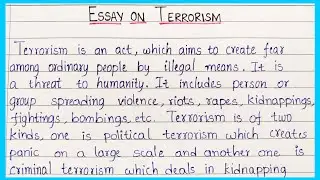 ESSAY ON TERRORISM
Terrorism is an act, which aims to create fear
among ordinary people by illegal means. It is
a threat to humanity. It includes person or
group spreading violence, riots, rapes, kidnappings,
fightings, bombings, etc. Terrorism is of two
kinds, one is political terrorism which creates
panic on a large scale and another one is
criminal terrorism which deals in kidnapping